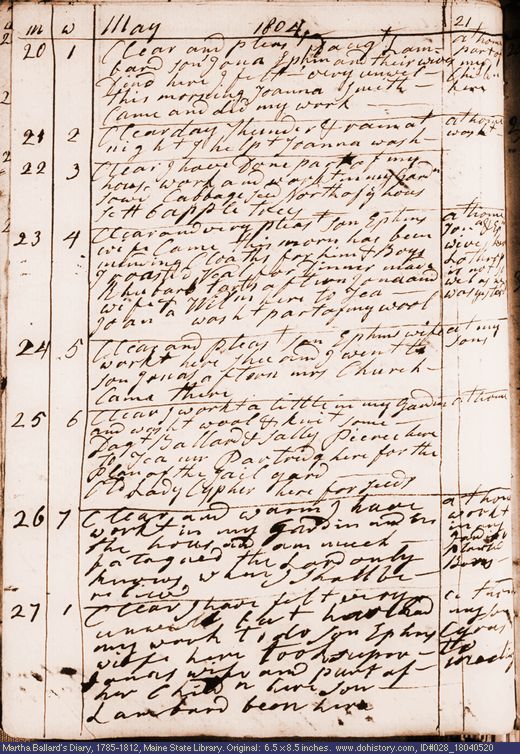 m w May 1804, 21
20 1 Clear and pleast Daugt Lam-
bard Son Jona Ephm and their wives
Dind here I felt very unwel
this morning Joanna Smith
Came and did my work
at home
part of
my
Childn
here
21 2 Clear day Thunder & rain at
night I helpt Joanna wash
at home
washt
22 3 Clear I have Done part of my
hous work and workt in my gardn
Sowd Cabbage Sd North of ye hous
sett 6 apple trees
23 4 Clear and very pleast Son Ephms
wife Came this morn has been
Cloaths for him & Boys
I roasted Veal for dinner made
Rhubarb tarts afternn Jona and
wife & here to Tea
washt part of my wool
at home
wives here
is not
wel as
24 5 Clear and pleast Son Ephms wife
workt here Shee and I went to
Son Jonas aftern mrs Church-
Came there
at my
Sons
25 6 Clear I workt a little in my Gardin
and washt wool & knit some
Dagt Ballard & Sally Peirce here
to Tea mr Partridg here for the
Plan of the Gail yard
Old Lady Cypher here for seeds
at home
26 7 Clear and warm I have
workt in my Gardin and in
the hous and am much
fatagued the Lord only
knows when I shall be
relievd
at home
workt
in my
gardin
planted
Beens
27 1 Clear I have felt very
unwell but have had
my work to do Son Ephms
wife here took supper
Jonas wife and part of
her Childn here Son
Lambard been here
at home
my
Cyras
to
meeting
Martha Ballard's Diary, 1785-1812, Maine State Library. Original: 6.5 x 8.5 inches. www.dohistory.com, ID#028_18040520